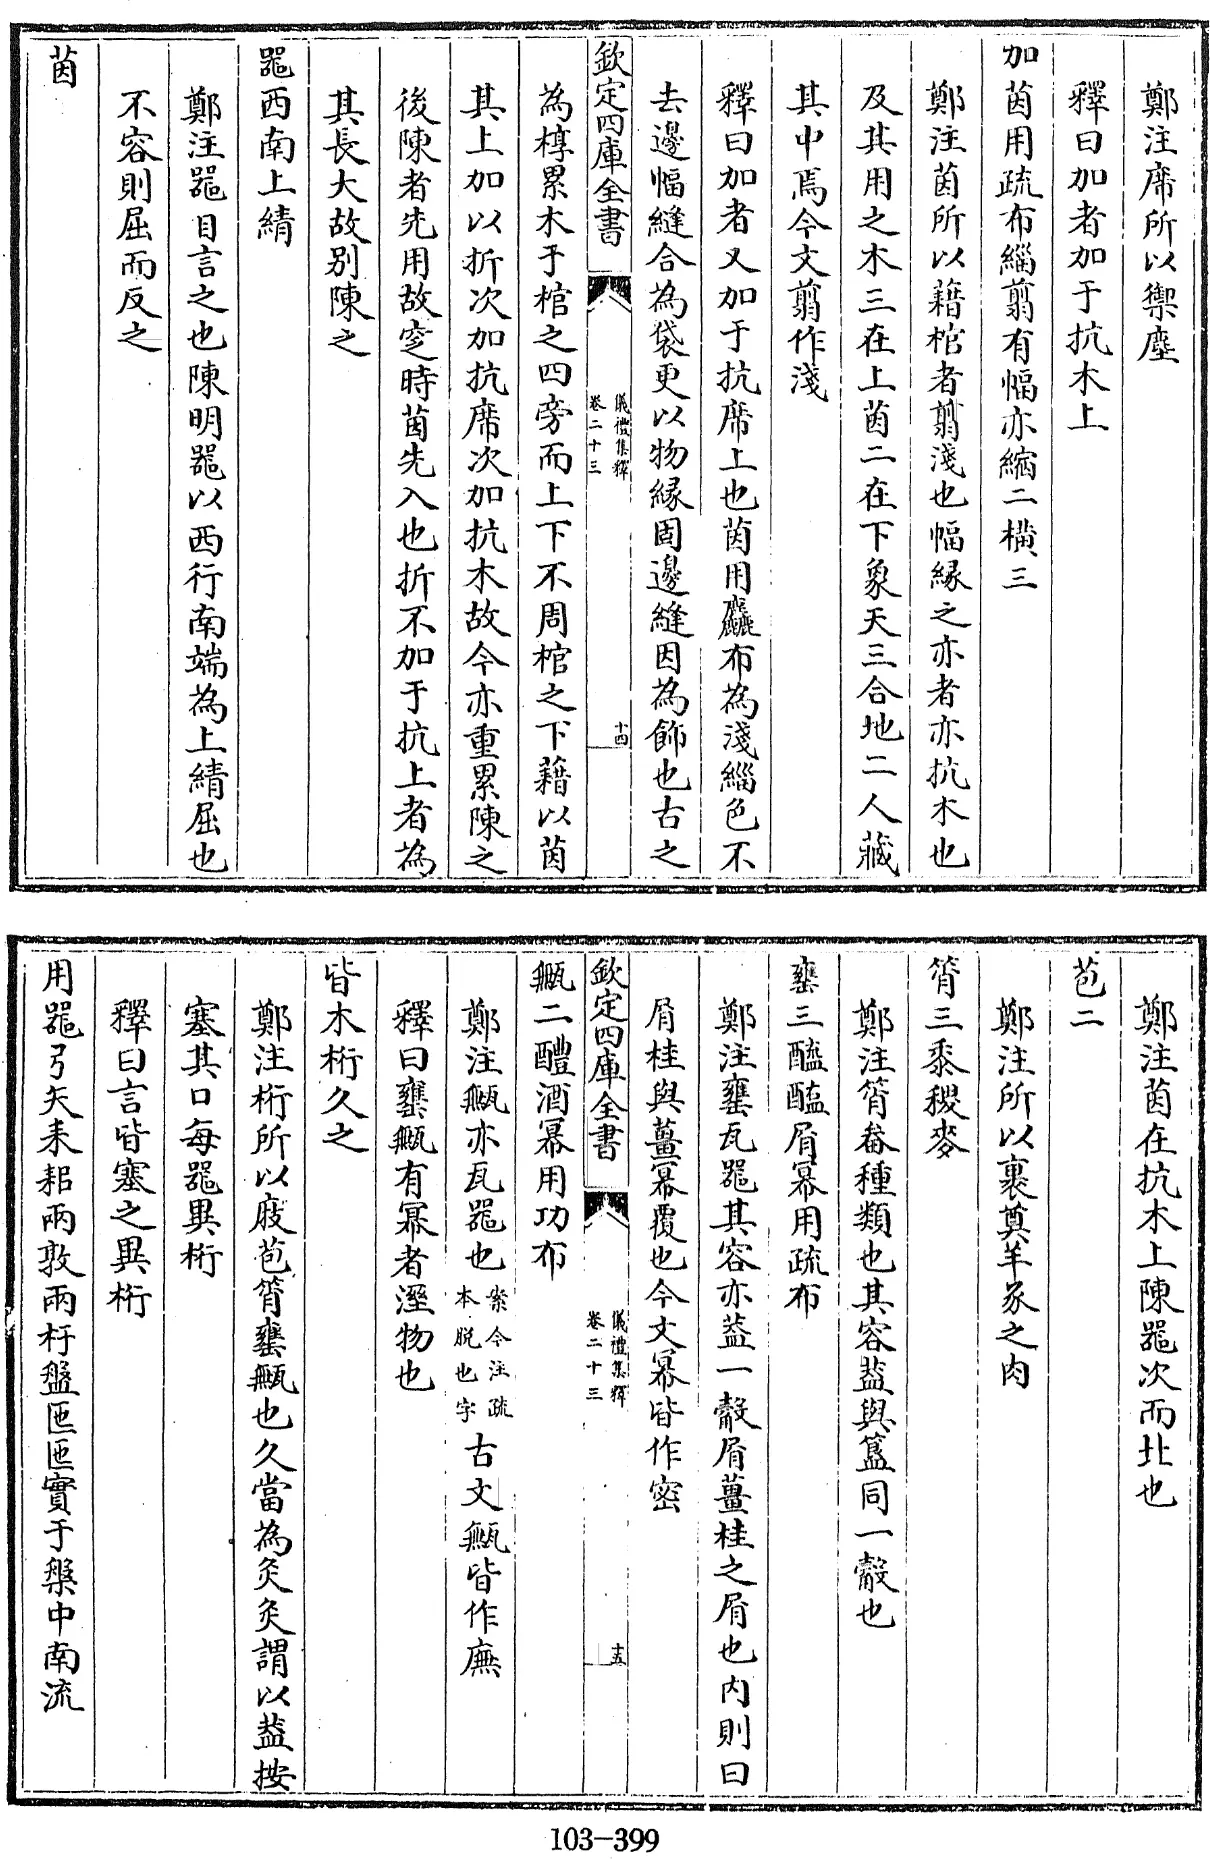 鄭注席所以禦塵
釋曰加者加于抗木上
加茵用疏布緇翦有幅亦縮二橫三
鄭注茵所以藉棺者翦淺也幅緣之亦者亦抗木也
及其用之木三在上茵二在下象天三合地二人藏
其中焉今文翦作淺
釋曰加者又加于抗席上也茵用麤布為淺緇色不
去邊幅縫合為袋更以物緣固邊縫因為飾也古之
欽定四庫全書
儀禮集釋
卷二十三
十四
為椁累木于棺之四旁而上下不周棺之下藉以茵
其上加以折次加抗席次加抗木故今亦重累陳之
後陳者先用故窆時茵先入也折不加于抗上者為
其長大故别陳之
器西南上綪
鄭注器目言之也陳明器以西行南端為上綪屈也
不容則屈而反之
茵
鄭注茵在抗木上陳器次而北也
苞二
鄭注所以裹奠羊豕之肉
筲三黍稷麥
鄭注筲畚種類也其容葢與簋同一觳也
甕三醯醢屑冪用疏布
鄭注甕瓦器其容亦葢一觳屑薑桂之屑也内則曰
屑桂與薑冪覆也今文冪皆作密
欽定四庫全書
儀禮集釋
卷二十三
十五
甒二醴酒冪用功布
鄭注甒亦瓦器也案今注疏本脱也字古文甒皆作廡
釋曰甕甒有冪者溼物也
皆木桁久之
鄭注桁所以庪苞筲甕甒也久當為灸灸謂以葢按
塞其口每器異桁
釋曰言皆塞之異桁
用器弓矢耒耜兩敦兩杅盤匜匜實于槃中南流
103-399